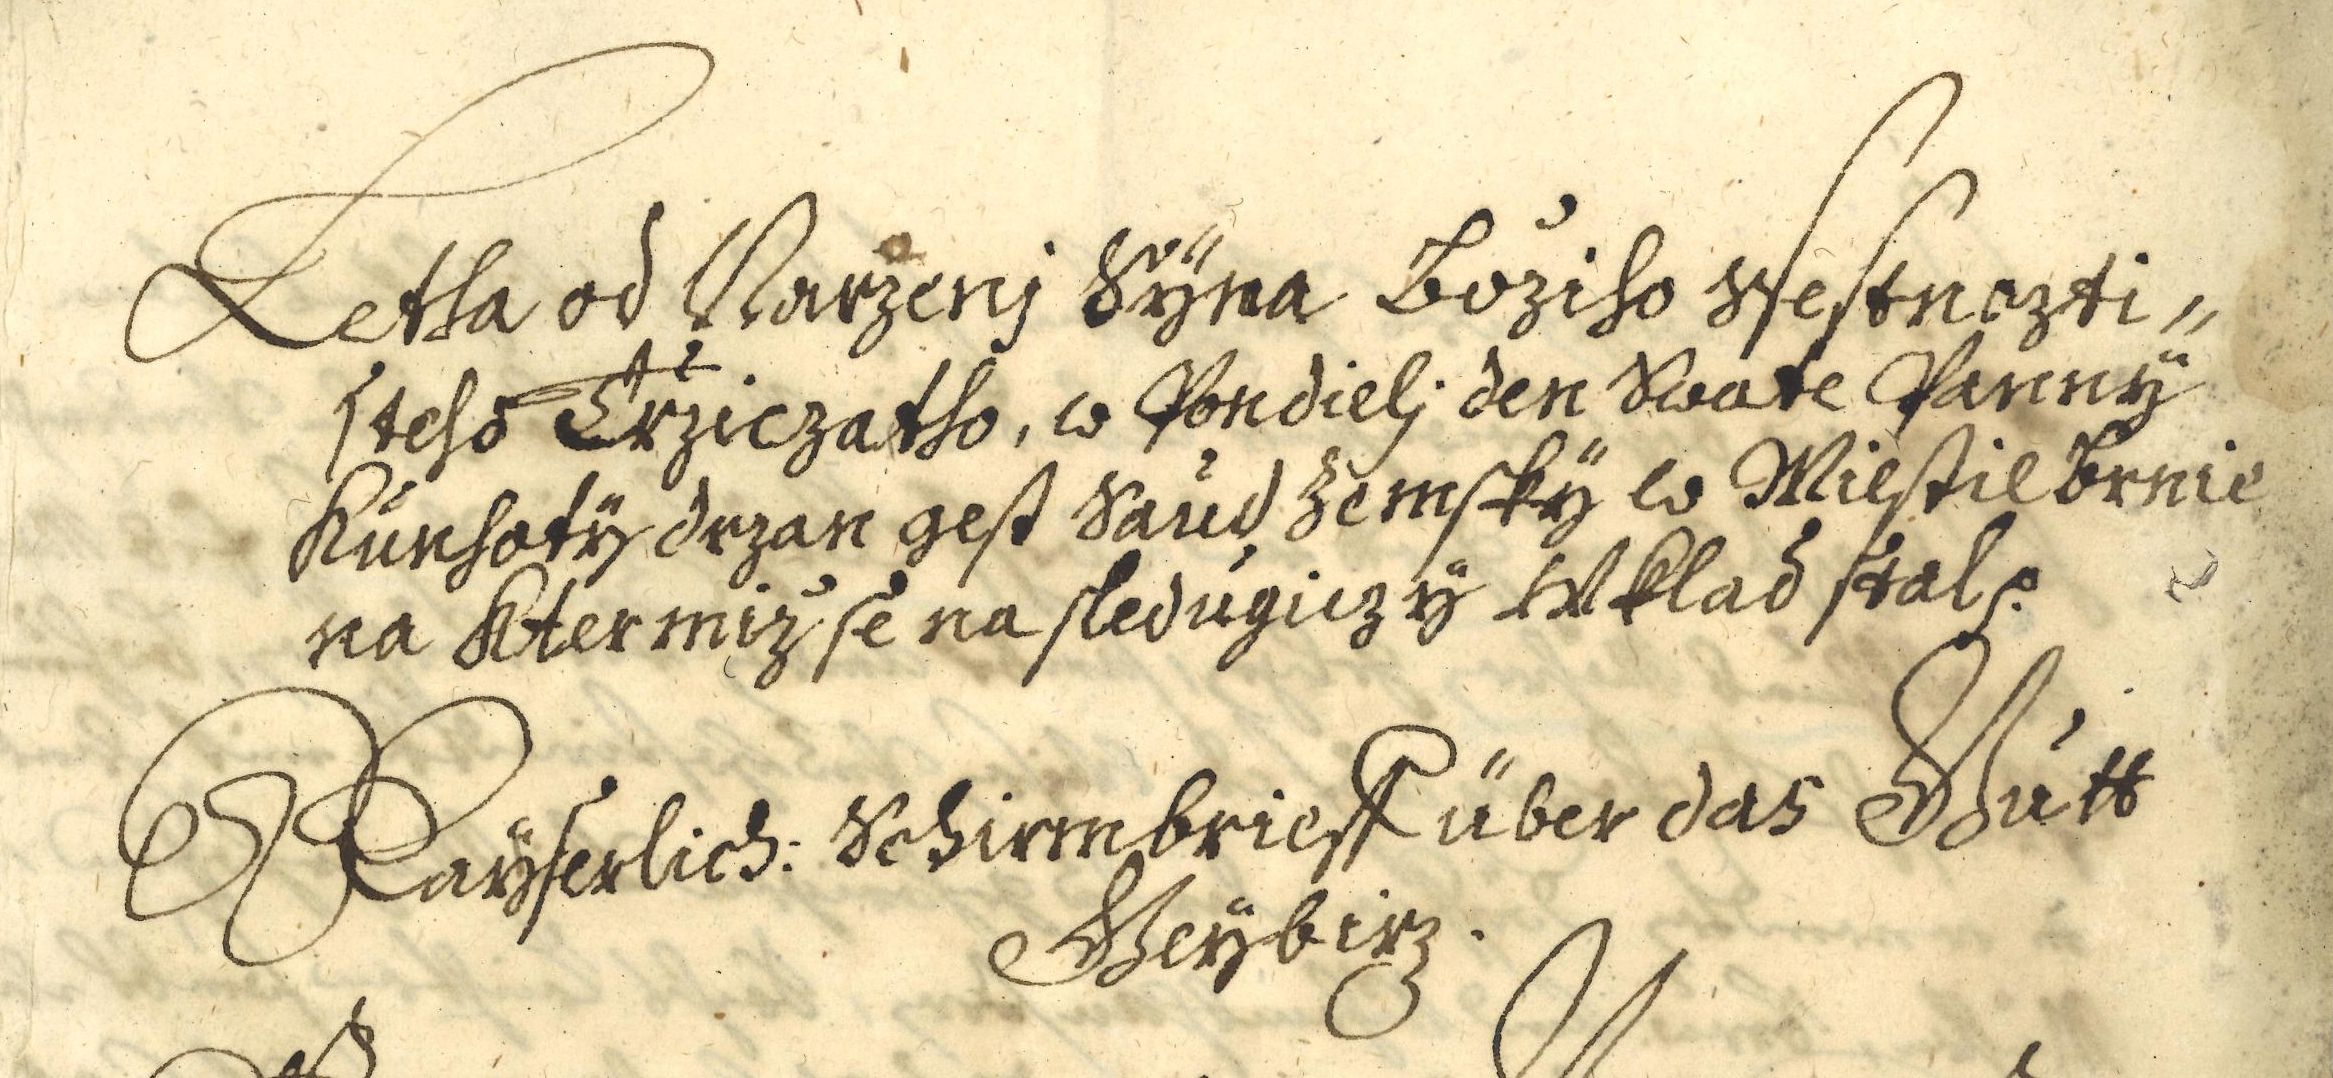 Letha od Narzenj Sÿna Božiho Ssestnczti⸗
steho Trziczatho, w Pondielj den Swate Panny
Kunhoty drzan gest Saud Zemskÿ w Miestie Brnie
na Ktermiž se nasledugiczÿ Wklad stal.
Kaÿserlich: Schirmbrieff über das Gutt
Geÿbirz.